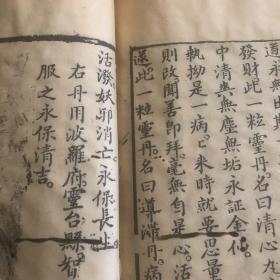 道永無
發財此一粒靈丹名曰清心
中清興無塵無垢永証金仙
執拗是一病人來時就要思量
則改聞善即拜毫無自是心活
遂此一粒靈丹名曰導滯丹病
活潑妖邪消亡永保長生
右丹用波羅府靈台縣智
服之永保清吉